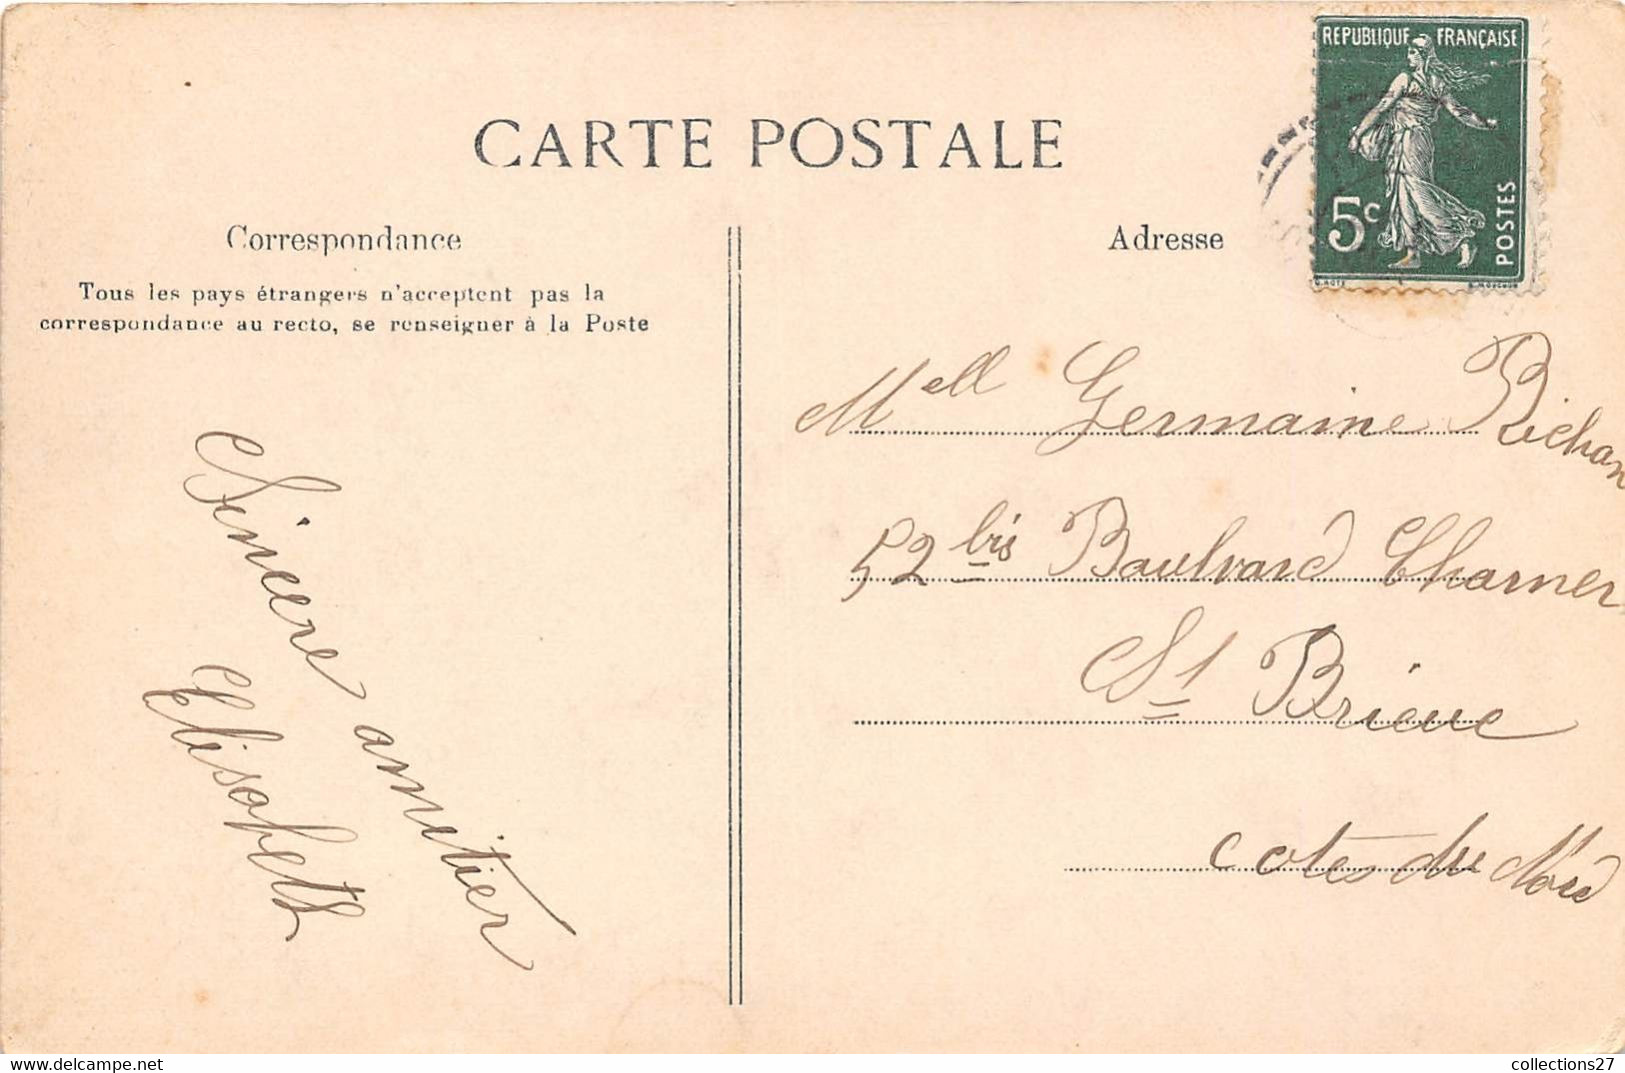 CARTE POSTALE
REPUBLIQUE FRANÇAISE
5c
POSTES
Correspondance
Tous les pays étrangers n'acceptent pas la
correspondance au recto, se renseigner à la Poste
Sincere amitier
Elisabeth
Adresse
Mell Germaine Richar
52 bis Boulvard Charner
St Brieuc
cotes du Nord
delcampe.net
collections27